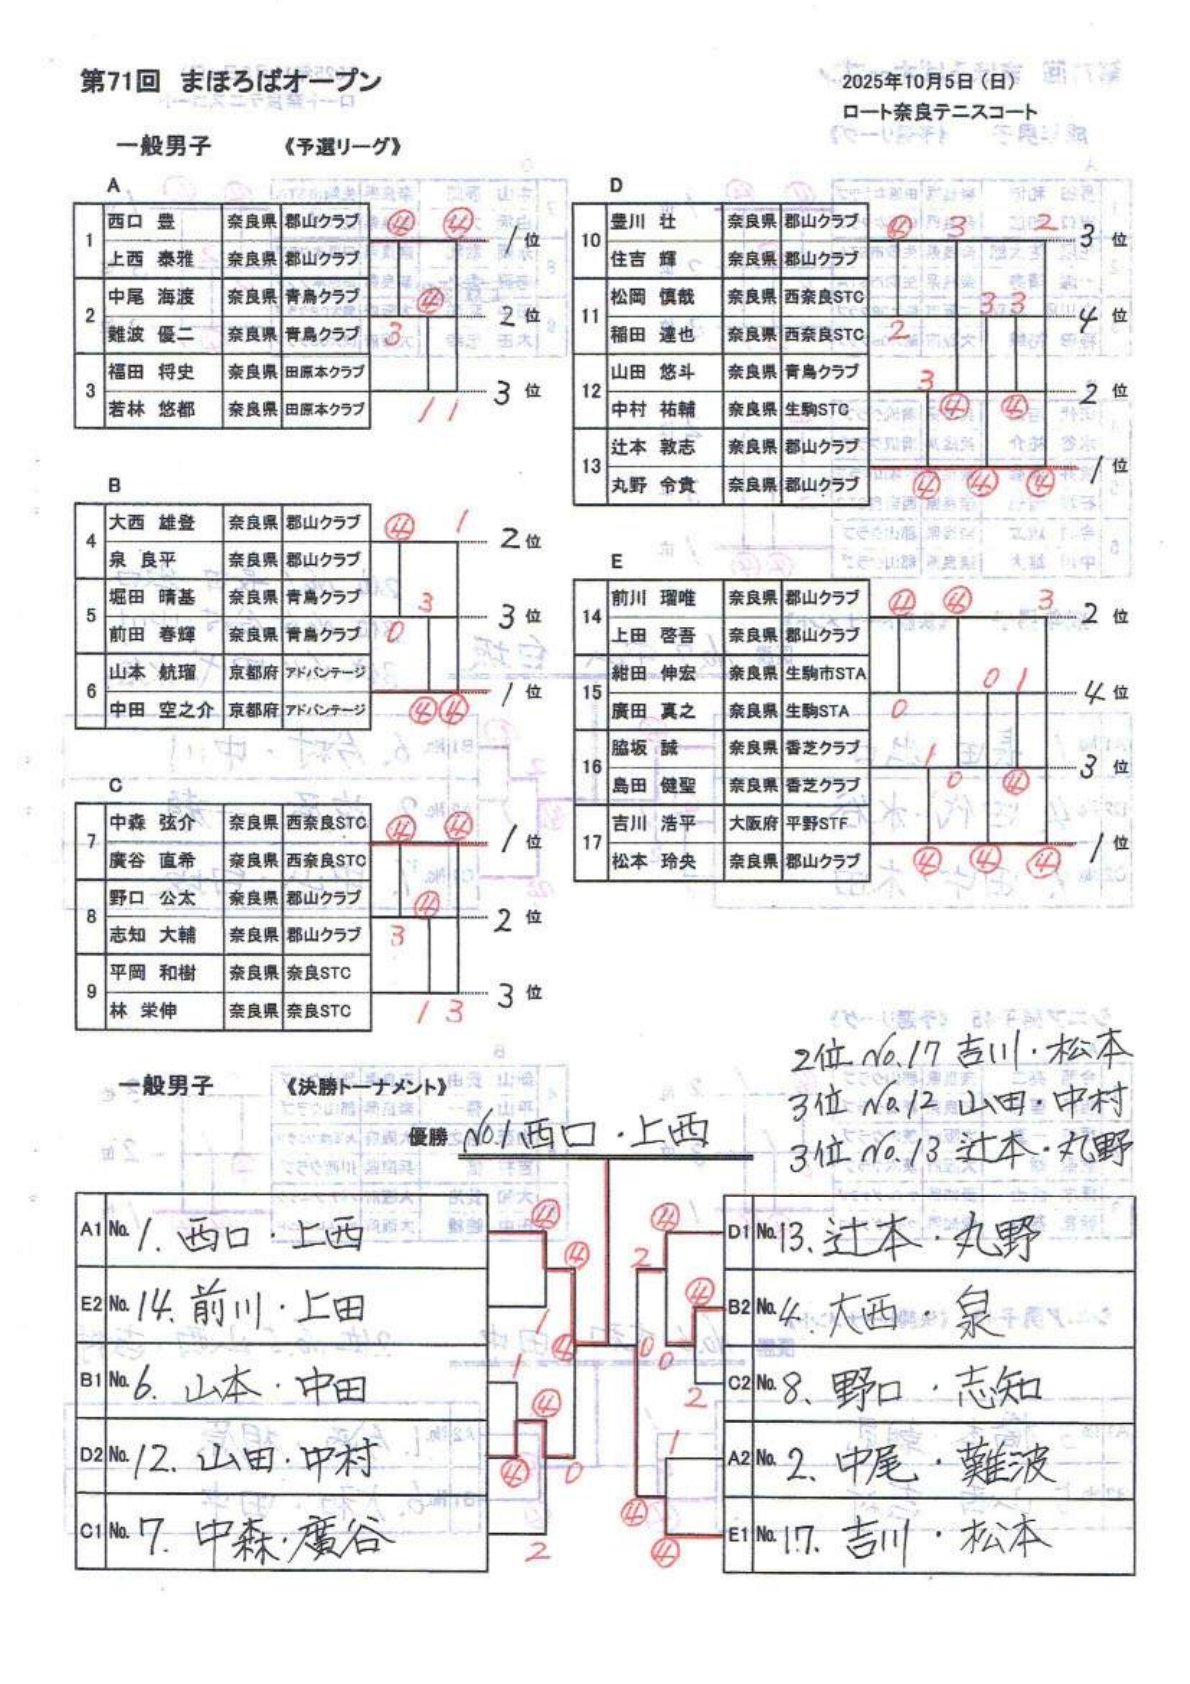 第71回 まほろばオープン
2025年10月5日(日)
ロート奈良テニスコート
一般男子 《予選リーグ》
A
1 西口 豊 奈良県 郡山クラブ ④ ④ 1位
上西 泰雅 奈良県 郡山クラブ
2 中尾 海渡 奈良県 青鳥クラブ ④ 2位
難波 優二 奈良県 青鳥クラブ 3
3 福田 将史 奈良県 田原本クラブ 3位
若林 悠都 奈良県 田原本クラブ 1 1
B
4 大西 雄登 奈良県 郡山クラブ ④ 1 2位
泉 良平 奈良県 郡山クラブ
5 堀田 晴基 奈良県 青鳥クラブ 3 3位
前田 春輝 奈良県 青鳥クラブ 0
6 山本 航瑠 京都府 アドバンテージ 1位
中田 空之介 京都府 アドバンテージ ④ ④
C
7 中森 弦介 奈良県 西奈良STC ④ ④ 1位
廣谷 直希 奈良県 西奈良STC
8 野口 公太 奈良県 郡山クラブ ④ 2位
志知 大輔 奈良県 郡山クラブ 3
9 平岡 和樹 奈良県 奈良STC 3位
林 栄伸 奈良県 奈良STC 1 3
D
10 豊川 壮 奈良県 郡山クラブ ④ 3 2 3位
住吉 輝 奈良県 郡山クラブ
11 松岡 慎哉 奈良県 西奈良STC 3 3 4位
稲田 達也 奈良県 西奈良STC 2
12 山田 悠斗 奈良県 青鳥クラブ 3 2位
中村 祐輔 奈良県 生駒STC ④ ④
13 辻本 敦志 奈良県 郡山クラブ 1位
丸野 令貴 奈良県 郡山クラブ ④ ④ ④
E
14 前川 瑠唯 奈良県 郡山クラブ ④ ④ 3 2位
上田 啓吾 奈良県 郡山クラブ
15 紺田 伸宏 奈良県 生駒市STA 0 1 4位
廣田 真之 奈良県 生駒STA 0
16 脇坂 誠 奈良県 香芝クラブ 1 3位
島田 健聖 奈良県 香芝クラブ 0 ④
17 吉川 浩平 大阪府 平野STF 1位
松本 玲央 奈良県 郡山クラブ ④ ④ ④
2位 No.17 吉川・松本
3位 No.12 山田・中村
3位 No.13 辻本・丸野
一般男子 《決勝トーナメント》
優勝 No.1 西口・上西
A1 No. 1. 西口・上西 ④
④
E2 No. 14. 前川・上田 1
④
B1 No. 6. 山本・中田 1
④
D2 No. 12. 山田・中村 ④ 0
C1 No. 7. 中森・廣谷 2
④ D1 No. 13. 辻本・丸野
2
④ B2 No. 4. 大西・泉
0 0
2 C2 No. 8. 野口・志知
1 A2 No. 2. 中尾・難波
④
④ E1 No. 17. 吉川・松本